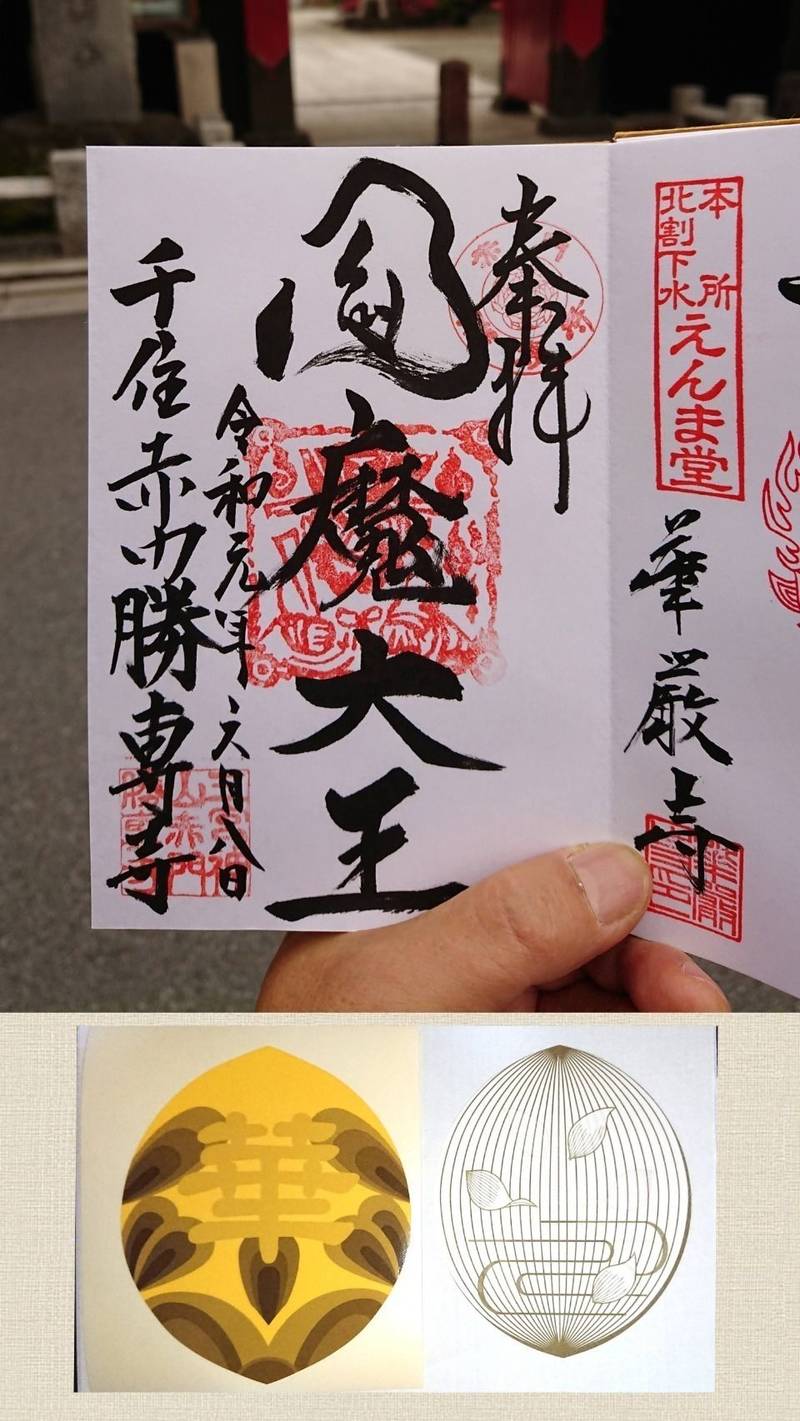 本所
北割下水
えんま堂
華厳寺
奉拝
閻魔大王
令和元年六月八日
千住赤門勝専寺
華